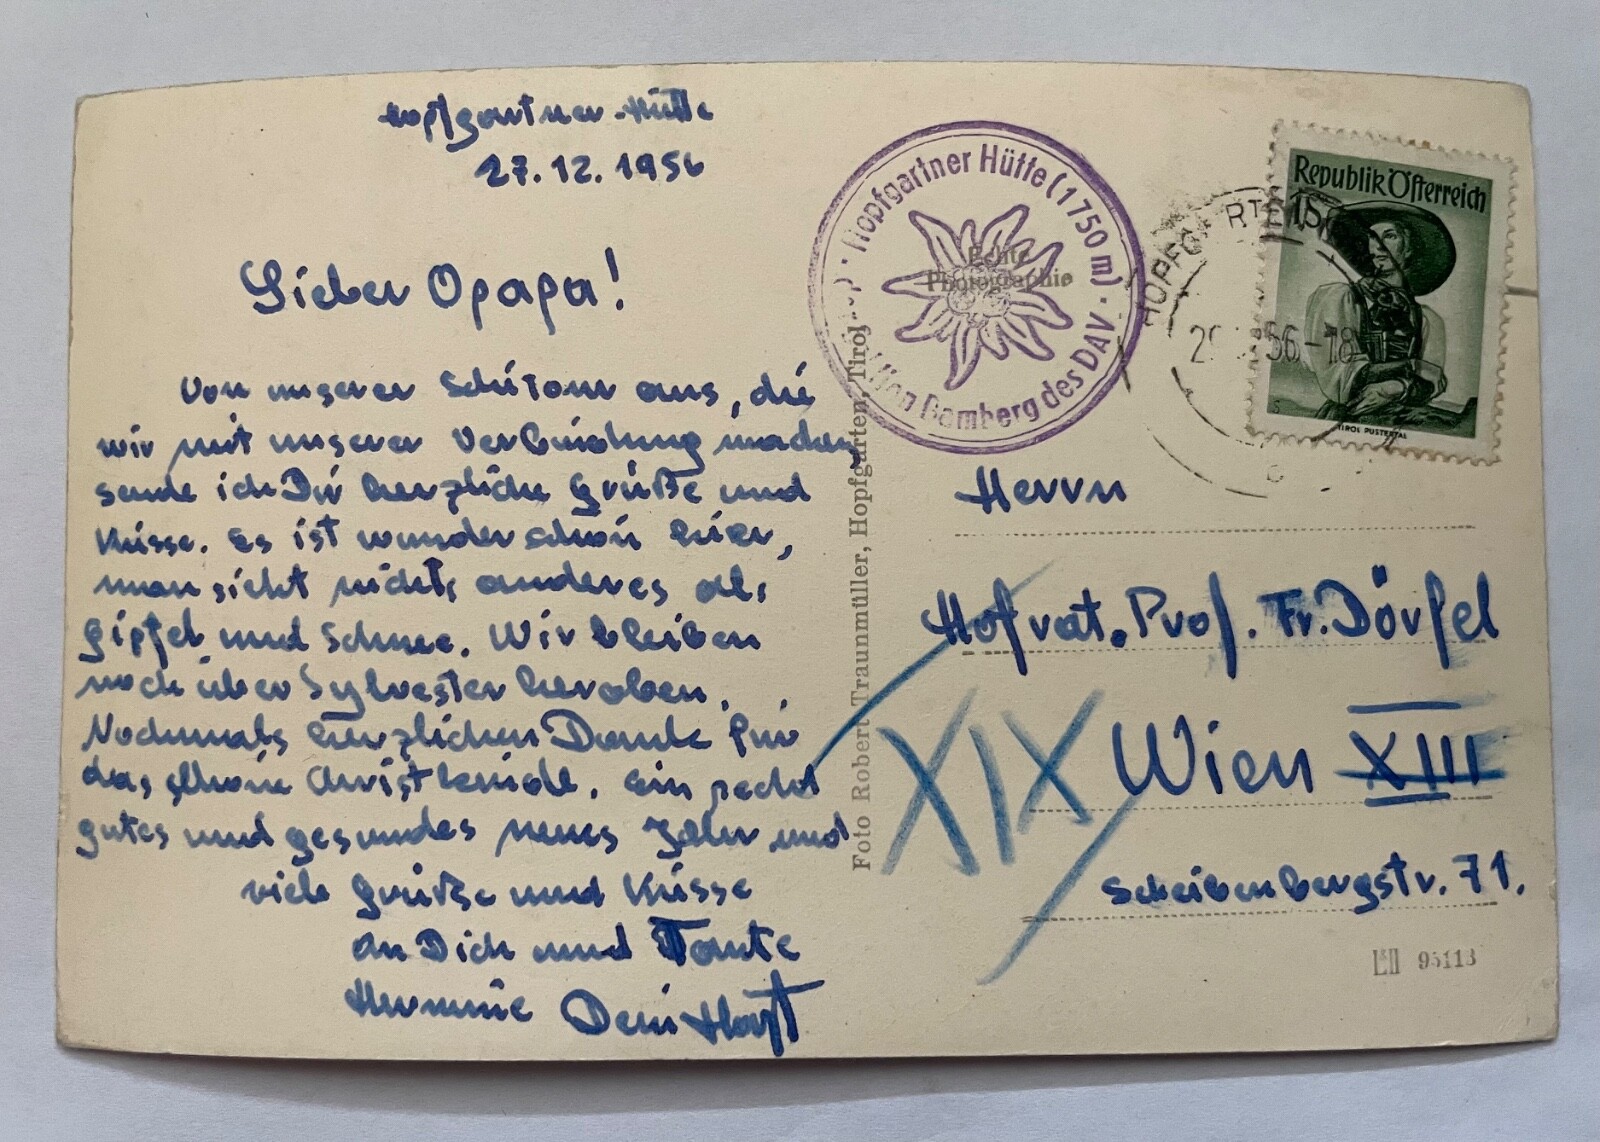 Hopfgartner-Hütte
27.12.1956
Lieber Opapa!
Von unserer Schitour aus, die
wir mit unserer Verbindung machen,
sende ich Dir herzliche Grüße und
Küsse. Es ist wunderschön hier,
man sicht nichts anderes als
Gipfel und Schnee. Wir bleiben
noch über Sylvester heroben.
Nochmals herzlichen Dank für
das schöne Christkindl. Ein recht
gutes und gesundes neues Jahr und
viele Grüße und Küsse
an Dich und Tante
Hermine Dein Horst
Hopfgartner Hütte (1750 m)
Bamberg des DAV
Echte
Photographie
Foto Robert Traunmüller, Hopfgarten, Tirol
HOPFGARTEN
56-18
Republik Österreich
TIROL PUSTERTAL
Herrn
Hofrat. Prof. Fr. Dörfel
XIX Wien XIII
Scheibenbergstr. 71.
95113